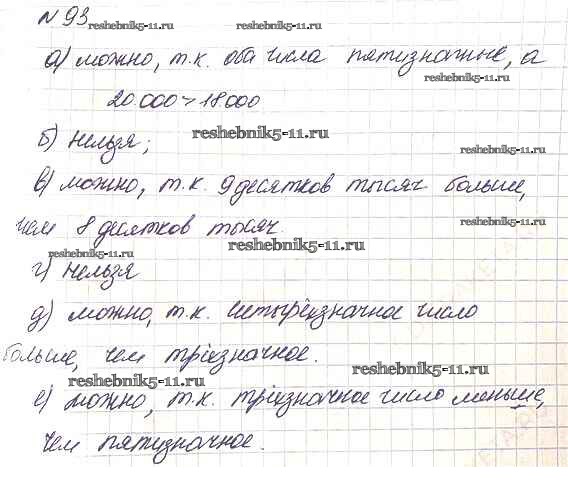 №93
reshebnik5-11.ru
reshebnik5-11.ru
а) можно, т.к. оба числа пятизначные, а
reshebnik5-11.ru
20.000>18000
reshebnik5-11.ru
б) нельзя;
reshebnik5-11.ru
в) можно, т.к. 9десятков тысяч больше,
чем 8 десятков тысяч.
reshebnik5-11.ru
reshebnik5-11.ru
reshebnik5-11.ru
г) нельзя
д) можно, т.к. четырёхзначное число
больше, чем трёхзначное.
reshebnik5-11.ru
reshebnik5-11.ru
е) можно, т.к. трёхзначное число меньше,
чем пятизначное.